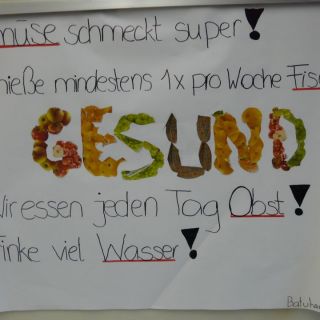 müse schmeckt super!
nieße mindestens 1x pro Woche Fisc
GESUND
Wir essen jeden Tag Obst!
rinke viel Wasser!
Batuha